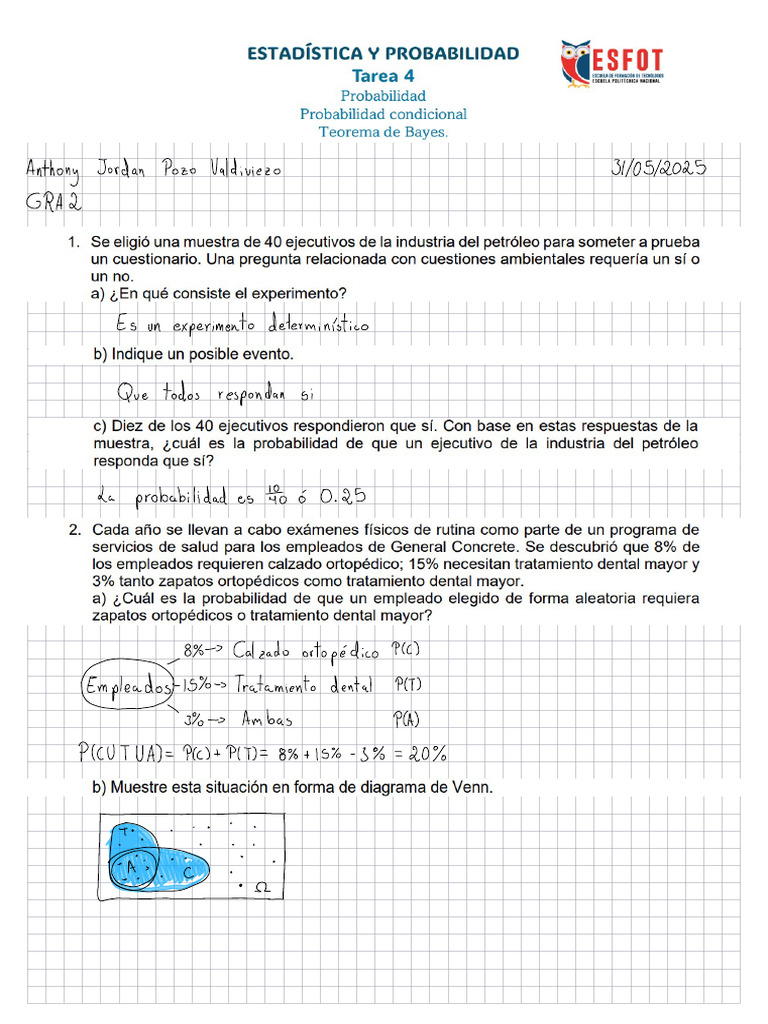 ESTADÍSTICA Y PROBABILIDAD
Tarea 4
Probabilidad
Probabilidad condicional
Teorema de Bayes.
ESFOT
ESCUELA DE FORMACIÓN DE TECNÓLOGOS
ESCUELA POLITÉCNICA NACIONAL
Anthony Jordan Pozo Valdiviezo 31/05/2025
GRA2
1. Se eligió una muestra de 40 ejecutivos de la industria del petróleo para someter a prueba
un cuestionario. Una pregunta relacionada con cuestiones ambientales requería un sí o
un no.
a) ¿En qué consiste el experimento?
Es un experimento determinístico
b) Indique un posible evento.
Que todos respondan si
c) Diez de los 40 ejecutivos respondieron que sí. Con base en estas respuestas de la
muestra, ¿cuál es la probabilidad de que un ejecutivo de la industria del petróleo
responda que sí?
La probabilidad es 10/40 ó 0.25
2. Cada año se llevan a cabo exámenes físicos de rutina como parte de un programa de
servicios de salud para los empleados de General Concrete. Se descubrió que 8% de
los empleados requieren calzado ortopédico; 15% necesitan tratamiento dental mayor y
3% tanto zapatos ortopédicos como tratamiento dental mayor.
a) ¿Cuál es la probabilidad de que un empleado elegido de forma aleatoria requiera
zapatos ortopédicos o tratamiento dental mayor?
8% → Calzado ortopédico P(C)
Empleados 15% → Tratamiento dental P(T)
3% → Ambas P(A)
P(C U T U A) = P(C) + P(T) = 8% + 15% - 3% = 20%
b) Muestre esta situación en forma de diagrama de Venn.
T
A C
Ω